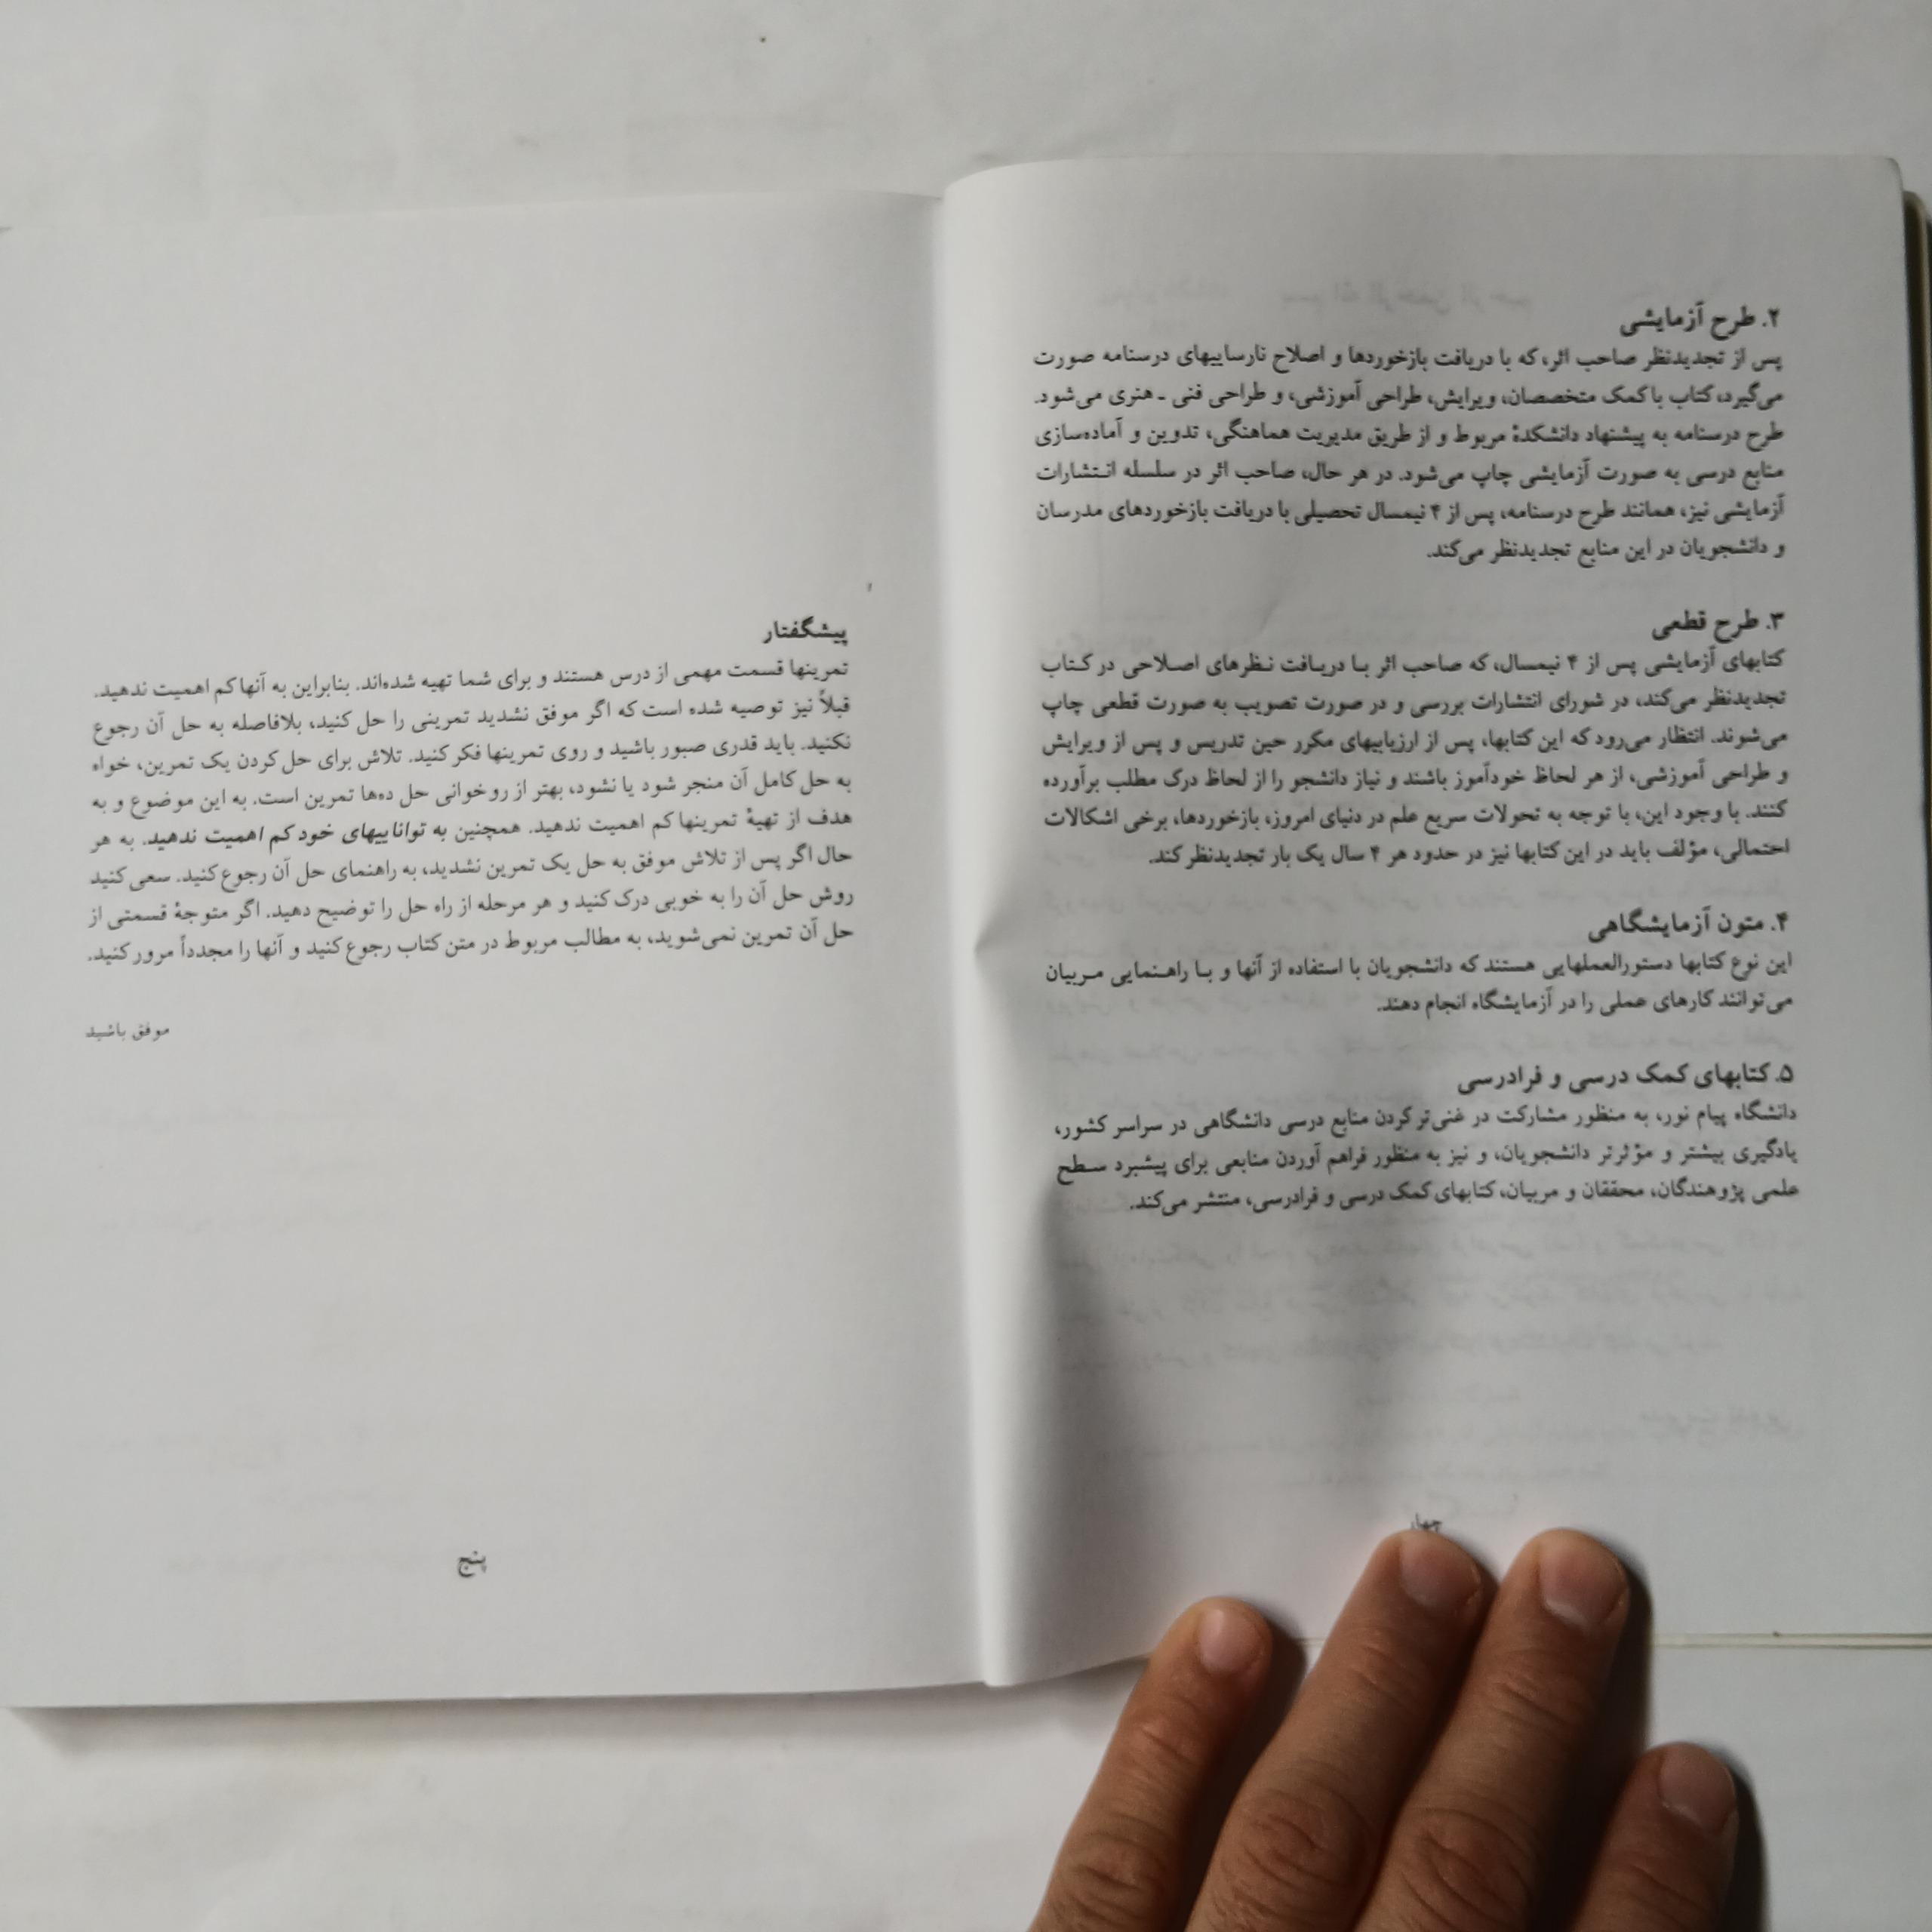 ۲. طرح آزمایشی
پس از تجدیدنظر صاحب اثر، که با دریافت بازخوردها و اصلاح نارساییهای درسنامه صورت
می‌گیرد، کتاب با کمک متخصصان، ویرایش، طراحی آموزشی، و طراحی فنی ـ هنری می‌شود.
طرح درسنامه به پیشنهاد دانشکدهٔ مربوط و از طریق مدیریت هماهنگی، تدوین و آماده‌سازی
منابع درسی به صورت آزمایشی چاپ می‌شود. در هر حال، صاحب اثر در سلسله انتشارات
آزمایشی نیز، همانند طرح درسنامه، پس از ۴ نیمسال تحصیلی با دریافت بازخوردهای مدرسان
و دانشجویان در این منابع تجدیدنظر می‌کند.
۳. طرح قطعی
کتابهای آزمایشی پس از ۴ نیمسال، که صاحب اثر با دریافت نظرهای اصلاحی در کتاب
تجدیدنظر می‌کند، در شورای انتشارات بررسی و در صورت تصویب به صورت قطعی چاپ
می‌شوند. انتظار می‌رود که این کتابها، پس از ارزیابیهای مکرر حین تدریس و پس از ویرایش
و طراحی آموزشی، از هر لحاظ خودآموز باشند و نیاز دانشجو را از لحاظ درک مطلب برآورده
کنند. با وجود این، با توجه به تحولات سریع علم در دنیای امروز، بازخوردها، برخی اشکالات
احتمالی، مؤلف باید در این کتابها نیز در حدود هر ۴ سال یک بار تجدیدنظر کند.
۴. متون آزمایشگاهی
این نوع کتابها دستورالعملهایی هستند که دانشجویان با استفاده از آنها و با راهنمایی مربیان
می‌توانند کارهای عملی را در آزمایشگاه انجام دهند.
۵. کتابهای کمک درسی و فرادرسی
دانشگاه پیام نور، به منظور مشارکت در غنی‌تر کردن منابع درسی دانشگاهی در سراسر کشور،
یادگیری بیشتر و مؤثرتر دانشجویان، و نیز به منظور فراهم آوردن منابعی برای پیشبرد سطح
علمی پژوهندگان، محققان و مربیان، کتابهای کمک درسی و فرادرسی، منتشر می‌کند.
چهار
پیشگفتار
تمرینها قسمت مهمی از درس هستند و برای شما تهیه شده‌اند. بنابراین به آنها کم اهمیت ندهید.
قبلاً نیز توصیه شده است که اگر موفق نشدید تمرینی را حل کنید، بلافاصله به حل آن رجوع
نکنید. باید قدری صبور باشید و روی تمرینها فکر کنید. تلاش برای حل کردن یک تمرین، خواه
به حل کامل آن منجر شود یا نشود، بهتر از روخوانی حل ده‌ها تمرین است. به این موضوع و به
هدف از تهیهٔ تمرینها کم اهمیت ندهید. همچنین به تواناییهای خود کم اهمیت ندهید. به هر
حال اگر پس از تلاش موفق به حل یک تمرین نشدید، به راهنمای حل آن رجوع کنید. سعی کنید
روش حل آن را به خوبی درک کنید و هر مرحله از راه حل را توضیح دهید. اگر متوجهٔ قسمتی از
حل آن تمرین نمی‌شوید، به مطالب مربوط در متن کتاب رجوع کنید و آنها را مجدداً مرور کنید.
موفق باشید
پنج